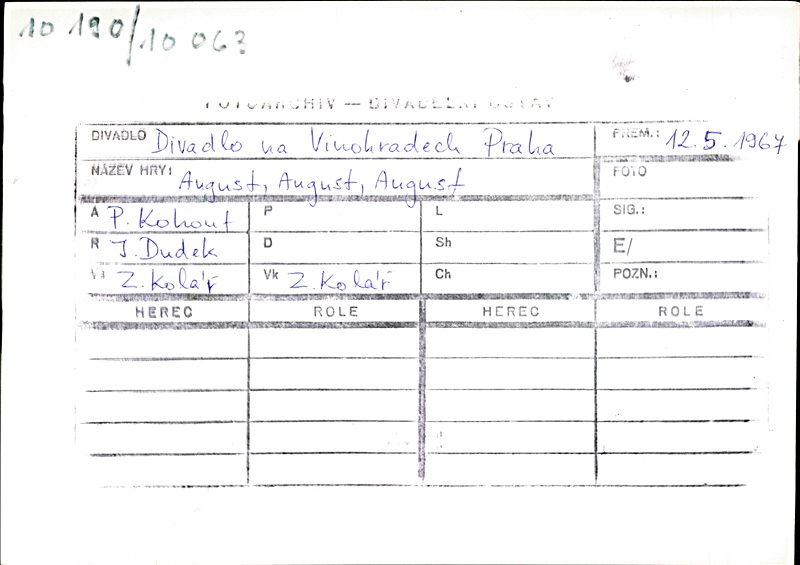 10 190/10 063
FOTOARCHIV — DIVADELNÍ ÚSTAV
DIVADLO Divadlo na Vinohradech Praha PREM.: 12.5.1967
NÁZEV HRY: August, August, August FOTO
A P. Kohout P L SIG.:
R J. Dudek D Sh E/
Z. Kolář Vk Z. Kolář Ch POZN.:
HEREC ROLE HEREC ROLE